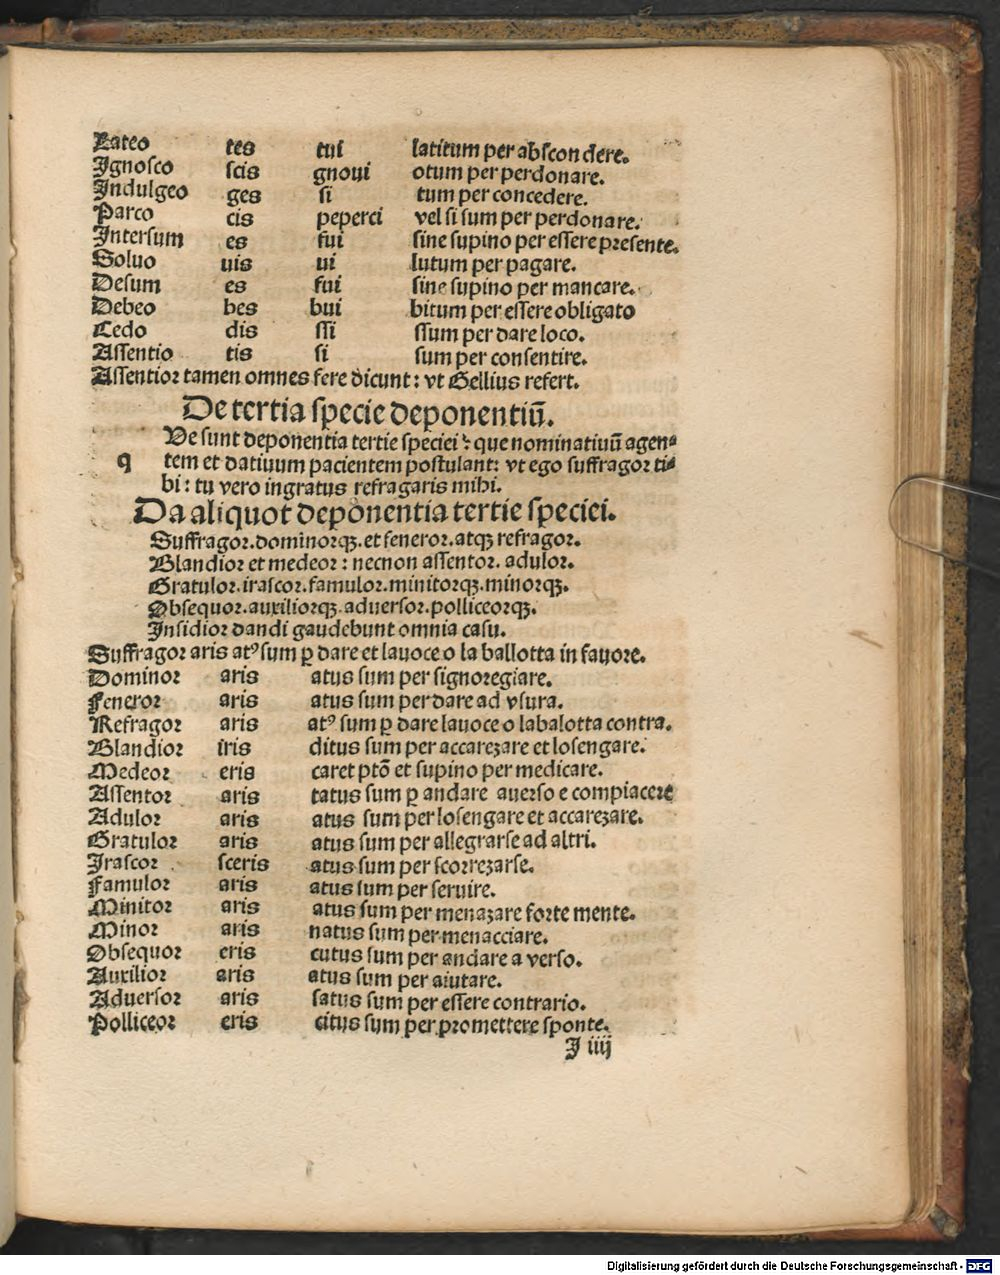 Lateo tes tui latitum per abscondere.
Ignosco scis gnoui otum per perdonare.
Indulgeo ges si tum per concedere.
Parco cis peperci vel si sum per perdonare.
Intersum es fui sine supino per essere presente.
Soluo uis ui lutum per pagare.
Desum es fui sine supino per mancare.
Debeo bes bui bitum per essere obligato
Cedo dis ssi ssum per dare loco.
Assentio tis si sum per consentire.
Assentior tamen omnes fere dicunt: vt Gellius refert.
De tertia specie deponentiū.
Ue sunt deponentia tertie speciei? que nominatiuū agen-
q tem et datiuum pacientem postulant: vt ego suffragor ti-
bi: tu vero ingratus refragaris mihi.
Da aliquot deponentia tertie speciei.
Suffragor.dominorqꝫ.et feneror.atqꝫ refragor.
Blandior et medeor: necnon assentor. adulor.
Gratulor.irascor.famulor.minitorqꝫ.minorqꝫ.
Obsequor.auxiliorqꝫ.aduersor.polliceorqꝫ.
Insidior dandi gaudebunt omnia casu.
Suffragor aris atꝰ sum ꝑ dare et lauoce o la ballotta in fauore.
Dominor aris atus sum per signoregiare.
Feneror aris atus sum per dare ad vsura.
Refragor aris atꝰ sum ꝑ dare lauoce o labalotta contra.
Blandior iris ditus sum per accarezare et losengare.
Medeor eris caret ptō et supino per medicare.
Assentor aris tatus sum ꝑ andare auerso e compiacere
Adulor aris atus sum per losengare et accarezare.
Gratulor aris atus sum per allegrarse ad altri.
Irascor sceris atus sum per scorrezarse.
Famulor aris atus sum per seruire.
Minitor aris atus sum per menazare forte mente.
Minor aris natus sum per menacciare.
Obsequor eris cutus sum per andare a verso.
Auxilior aris atus sum per aiutare.
Aduersor aris satus sum per essere contrario.
Polliceor eris citus sum per promettere sponte.
I iiij
Digitalisierung gefördert durch die Deutsche Forschungsgemeinschaft - DFG